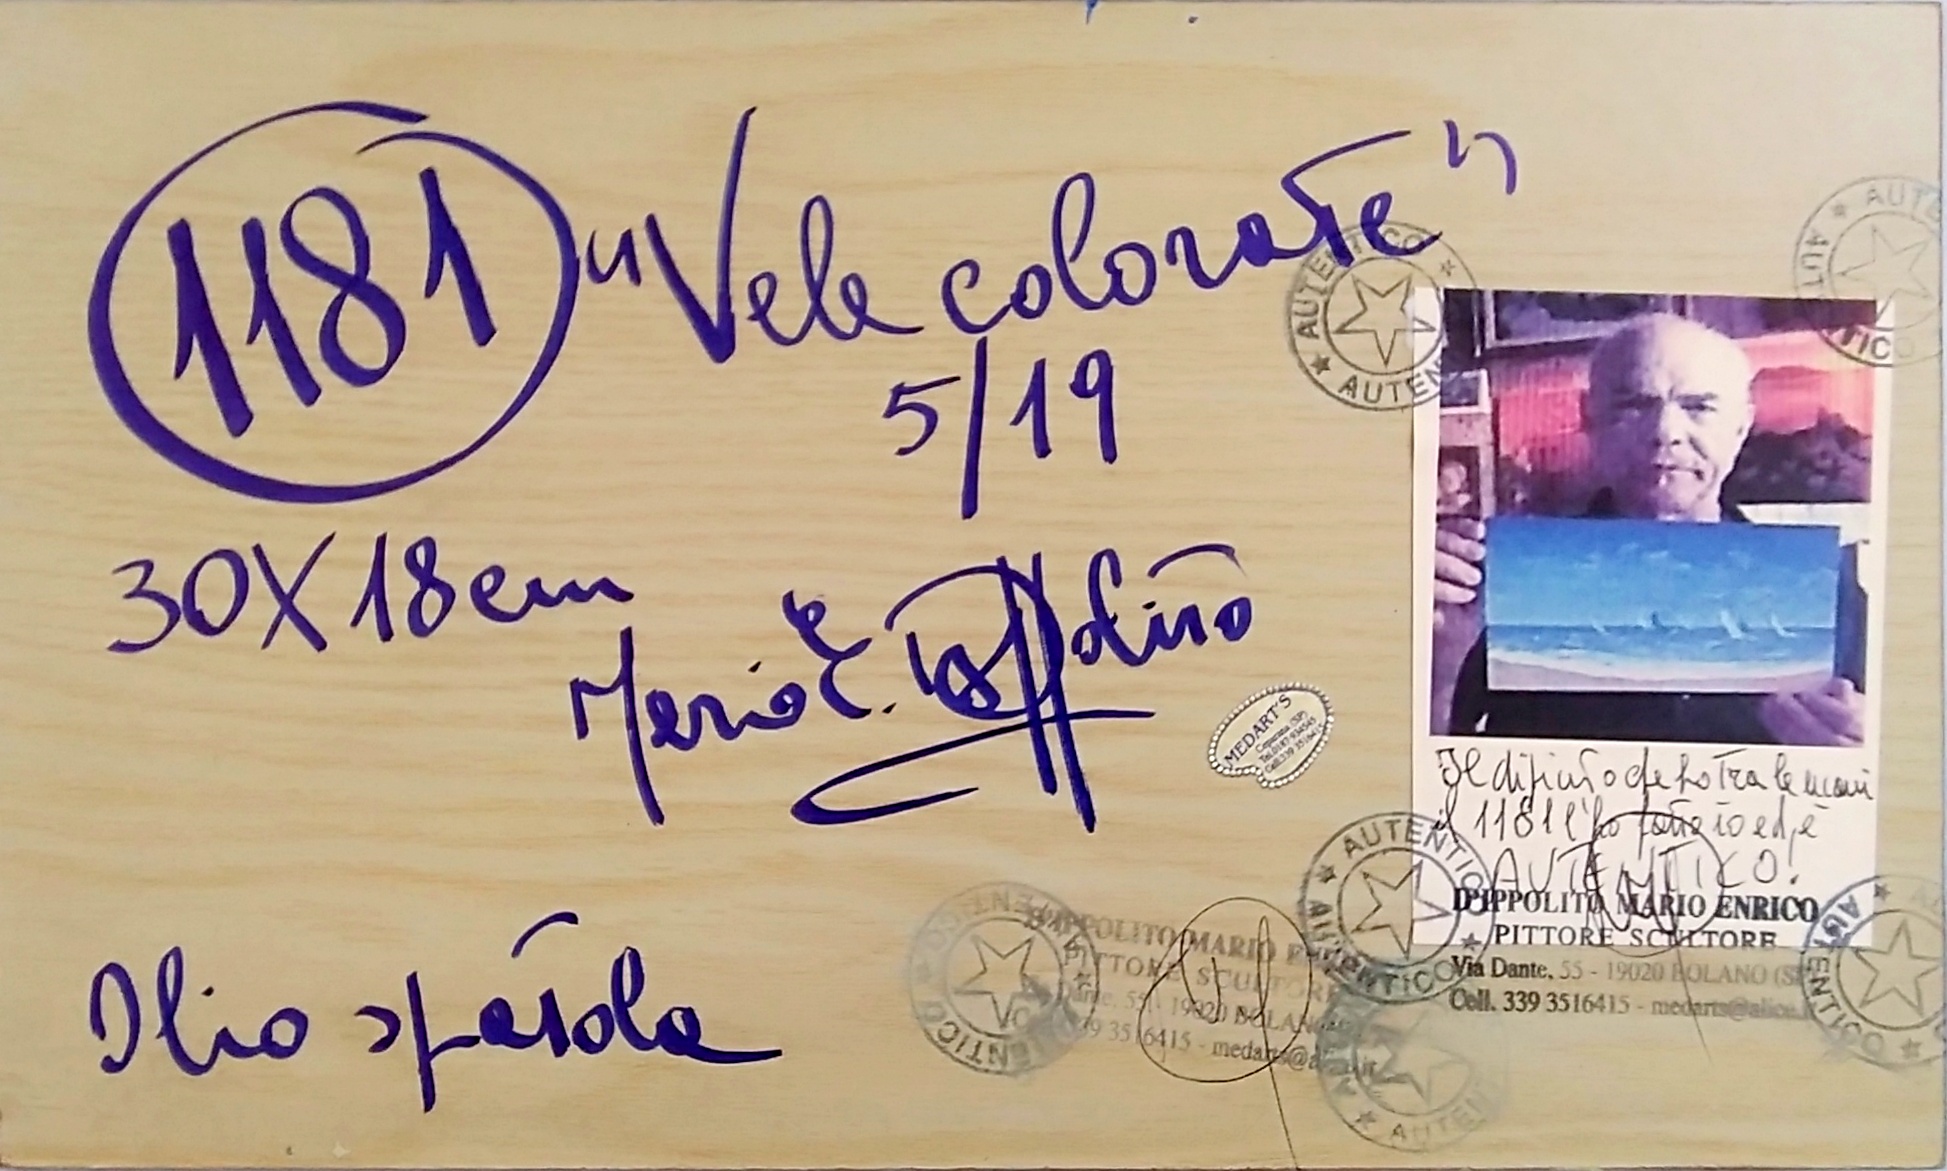 1181
"Vele colorate"
5/19
30X18cm
Mario E. D'Ippolito
Olio spatola
MEDART'S
Ceparana (SP)
Cell.339 3516415
Il dipinto che ho tra le mani
il 1181 l'ho fatto io ed è
AUTENTICO!
D'IPPOLITO MARIO ENRICO
PITTORE SCULTORE
Via Dante, 55 - 19020 BOLANO (SP
Cell. 339 3516415 - medarts@alice.i
IPPOLITO MARIO E
PITTORE SCULTORE
Dante, 55 - 19020 BOLANO
39 3516415 - medarts@alice.it
AUTENTICO
AUTENTICO
AUTENTICO
AUTENTICO
AUTENTICO
AUTENTICO